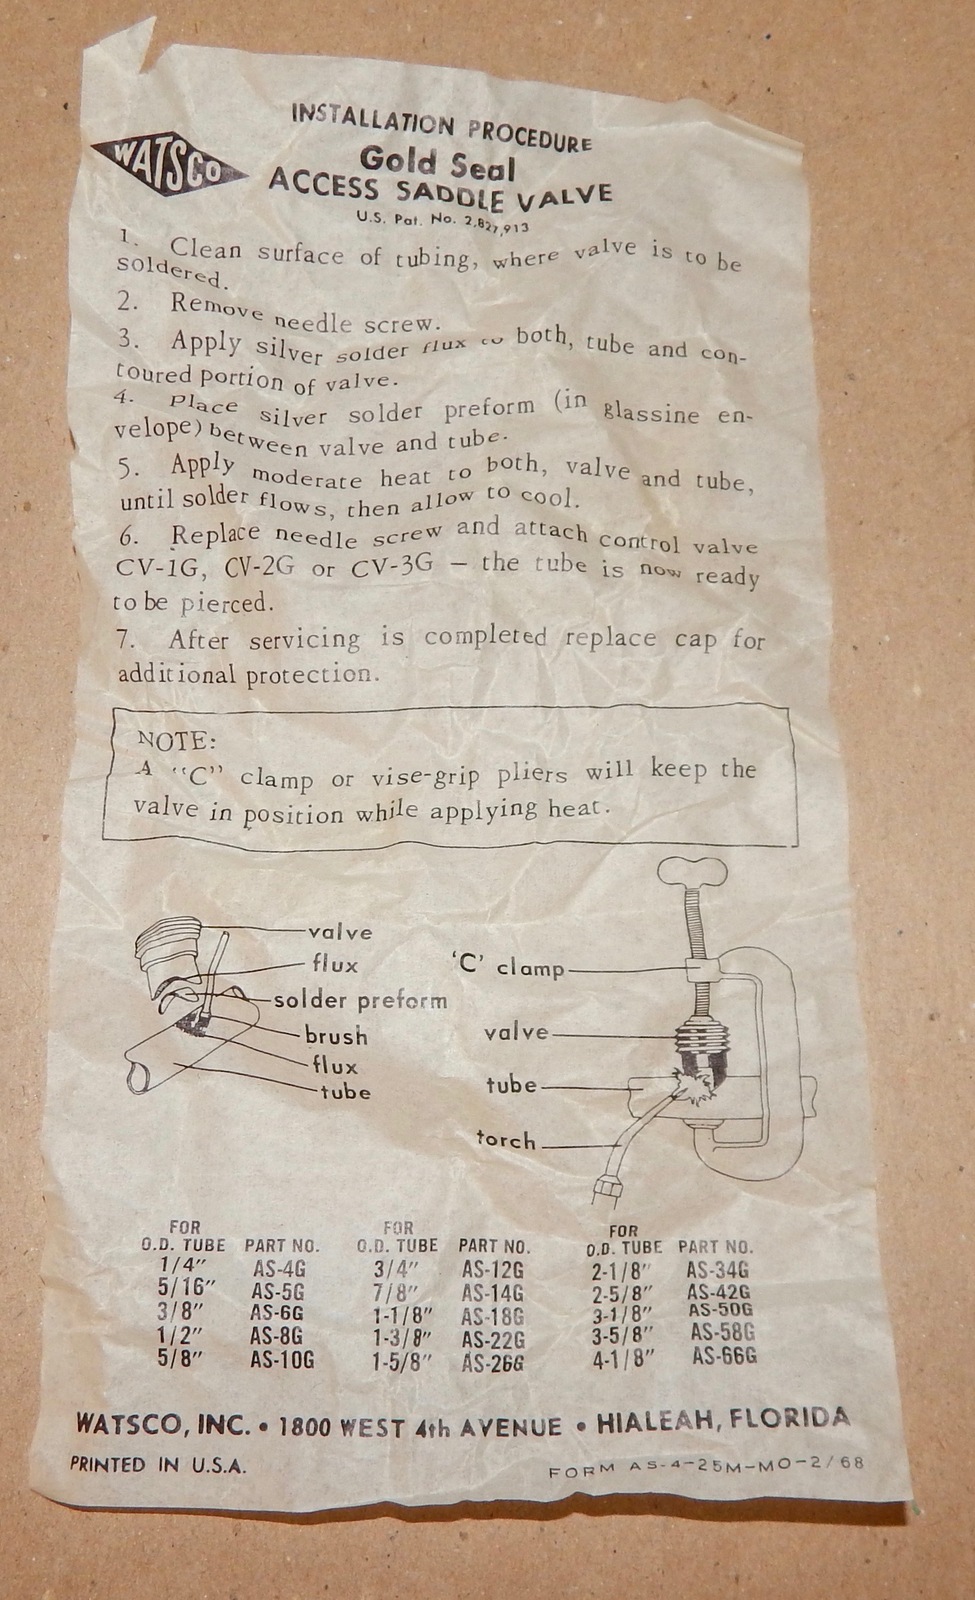 INSTALLATION PROCEDURE
WATSCO
Gold Seal
ACCESS SADDLE VALVE
U.S. Pat. No. 2,827,913
1. Clean surface of tubing, where valve is to be
soldered.
2. Remove needle screw.
3. Apply silver solder flux to both, tube and con-
toured portion of valve.
4. Place silver solder preform (in glassine en-
velope) between valve and tube.
5. Apply moderate heat to both, valve and tube,
until solder flows, then allow to cool.
6. Replace needle screw and attach control valve
CV-1G, CV-2G or CV-3G – the tube is now ready
to be pierced.
7. After servicing is completed replace cap for
additional protection.
NOTE:
A "C" clamp or vise-grip pliers will keep the
valve in position while applying heat.
valve
flux
solder preform
brush
flux
tube
'C' clamp
valve
tube
torch
FOR FOR FOR
O.D. TUBE PART NO. O.D. TUBE PART NO. O.D. TUBE PART NO.
1/4" AS-4G 3/4" AS-12G 2-1/8" AS-34G
5/16" AS-5G 7/8" AS-14G 2-5/8" AS-42G
3/8" AS-6G 1-1/8" AS-18G 3-1/8" AS-50G
1/2" AS-8G 1-3/8" AS-22G 3-5/8" AS-58G
5/8" AS-10G 1-5/8" AS-26G 4-1/8" AS-66G
WATSCO, INC. • 1800 WEST 4th AVENUE • HIALEAH, FLORIDA
PRINTED IN U.S.A. FORM AS-4-25M-MO-2/68